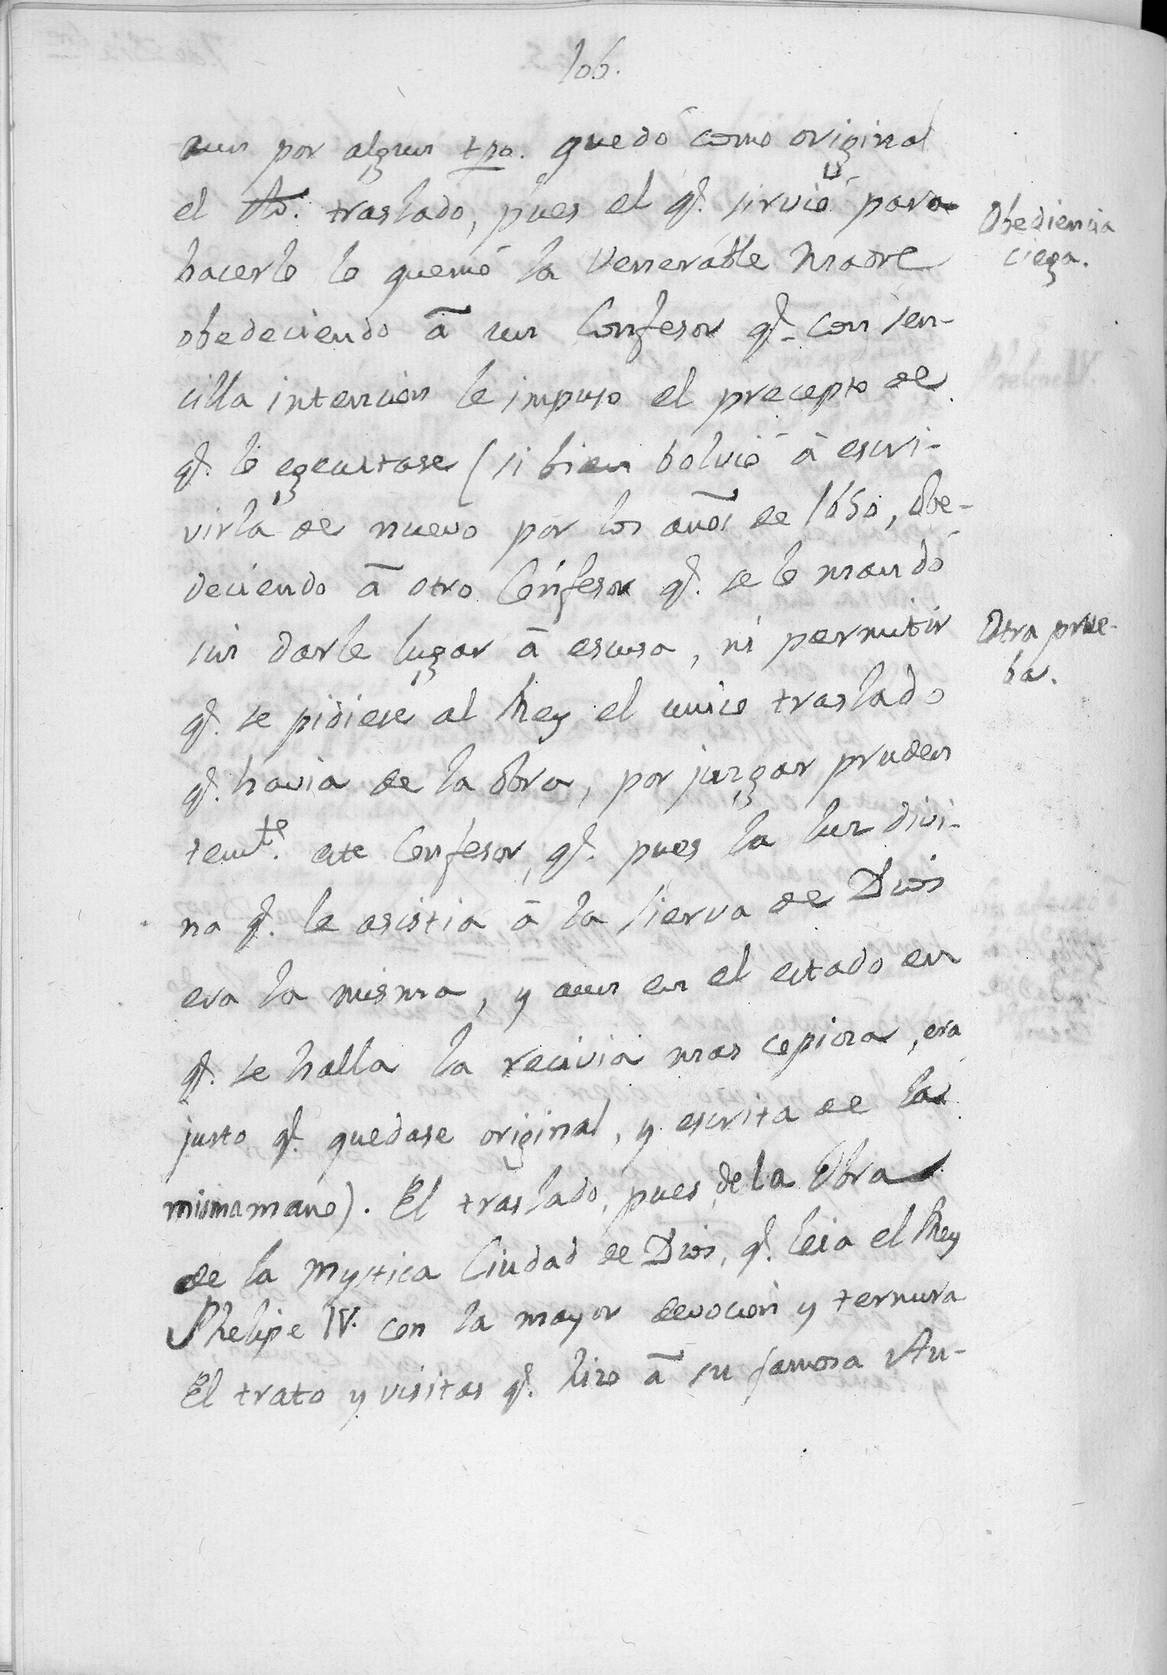 106.
aun por algun tpo. quedó como original
el dho. traslado, pues el q.e sirvió para
hacerle le quemó la Venerable Madre
obedeciendo â un Confesor q.e con sen-
cilla intencion le impuso el precepto de
q.e lo egecutase (si bien bolvió â escri-
virla de nuevo por los años de 1650, obe-
deciendo â otro Confesor q.e se lo mandó
sin darle lugar â escusa, ni permitir
q.e se pidiese al Rey el unico traslado
q.e havia de la obra, por juzgar pruden
temte. este Confesor, q.e pues la luz divi-
na q.e le asistia â la sierva de Dios
era la misma, y aun en el estado en
q.e se halla la recivia mas copiosa, era
justo q.e quedase original, y escrita de la
misma mano). El traslado, pues, de la Obra
de la Mystica Ciudad de Dios, q.e leia el Rey
Phelipe IV. con la mayor devocion y ternura
El trato y visitas q.e hizo â su famosa Au-
Obediencia
ciega.
Otra prue-
ba.